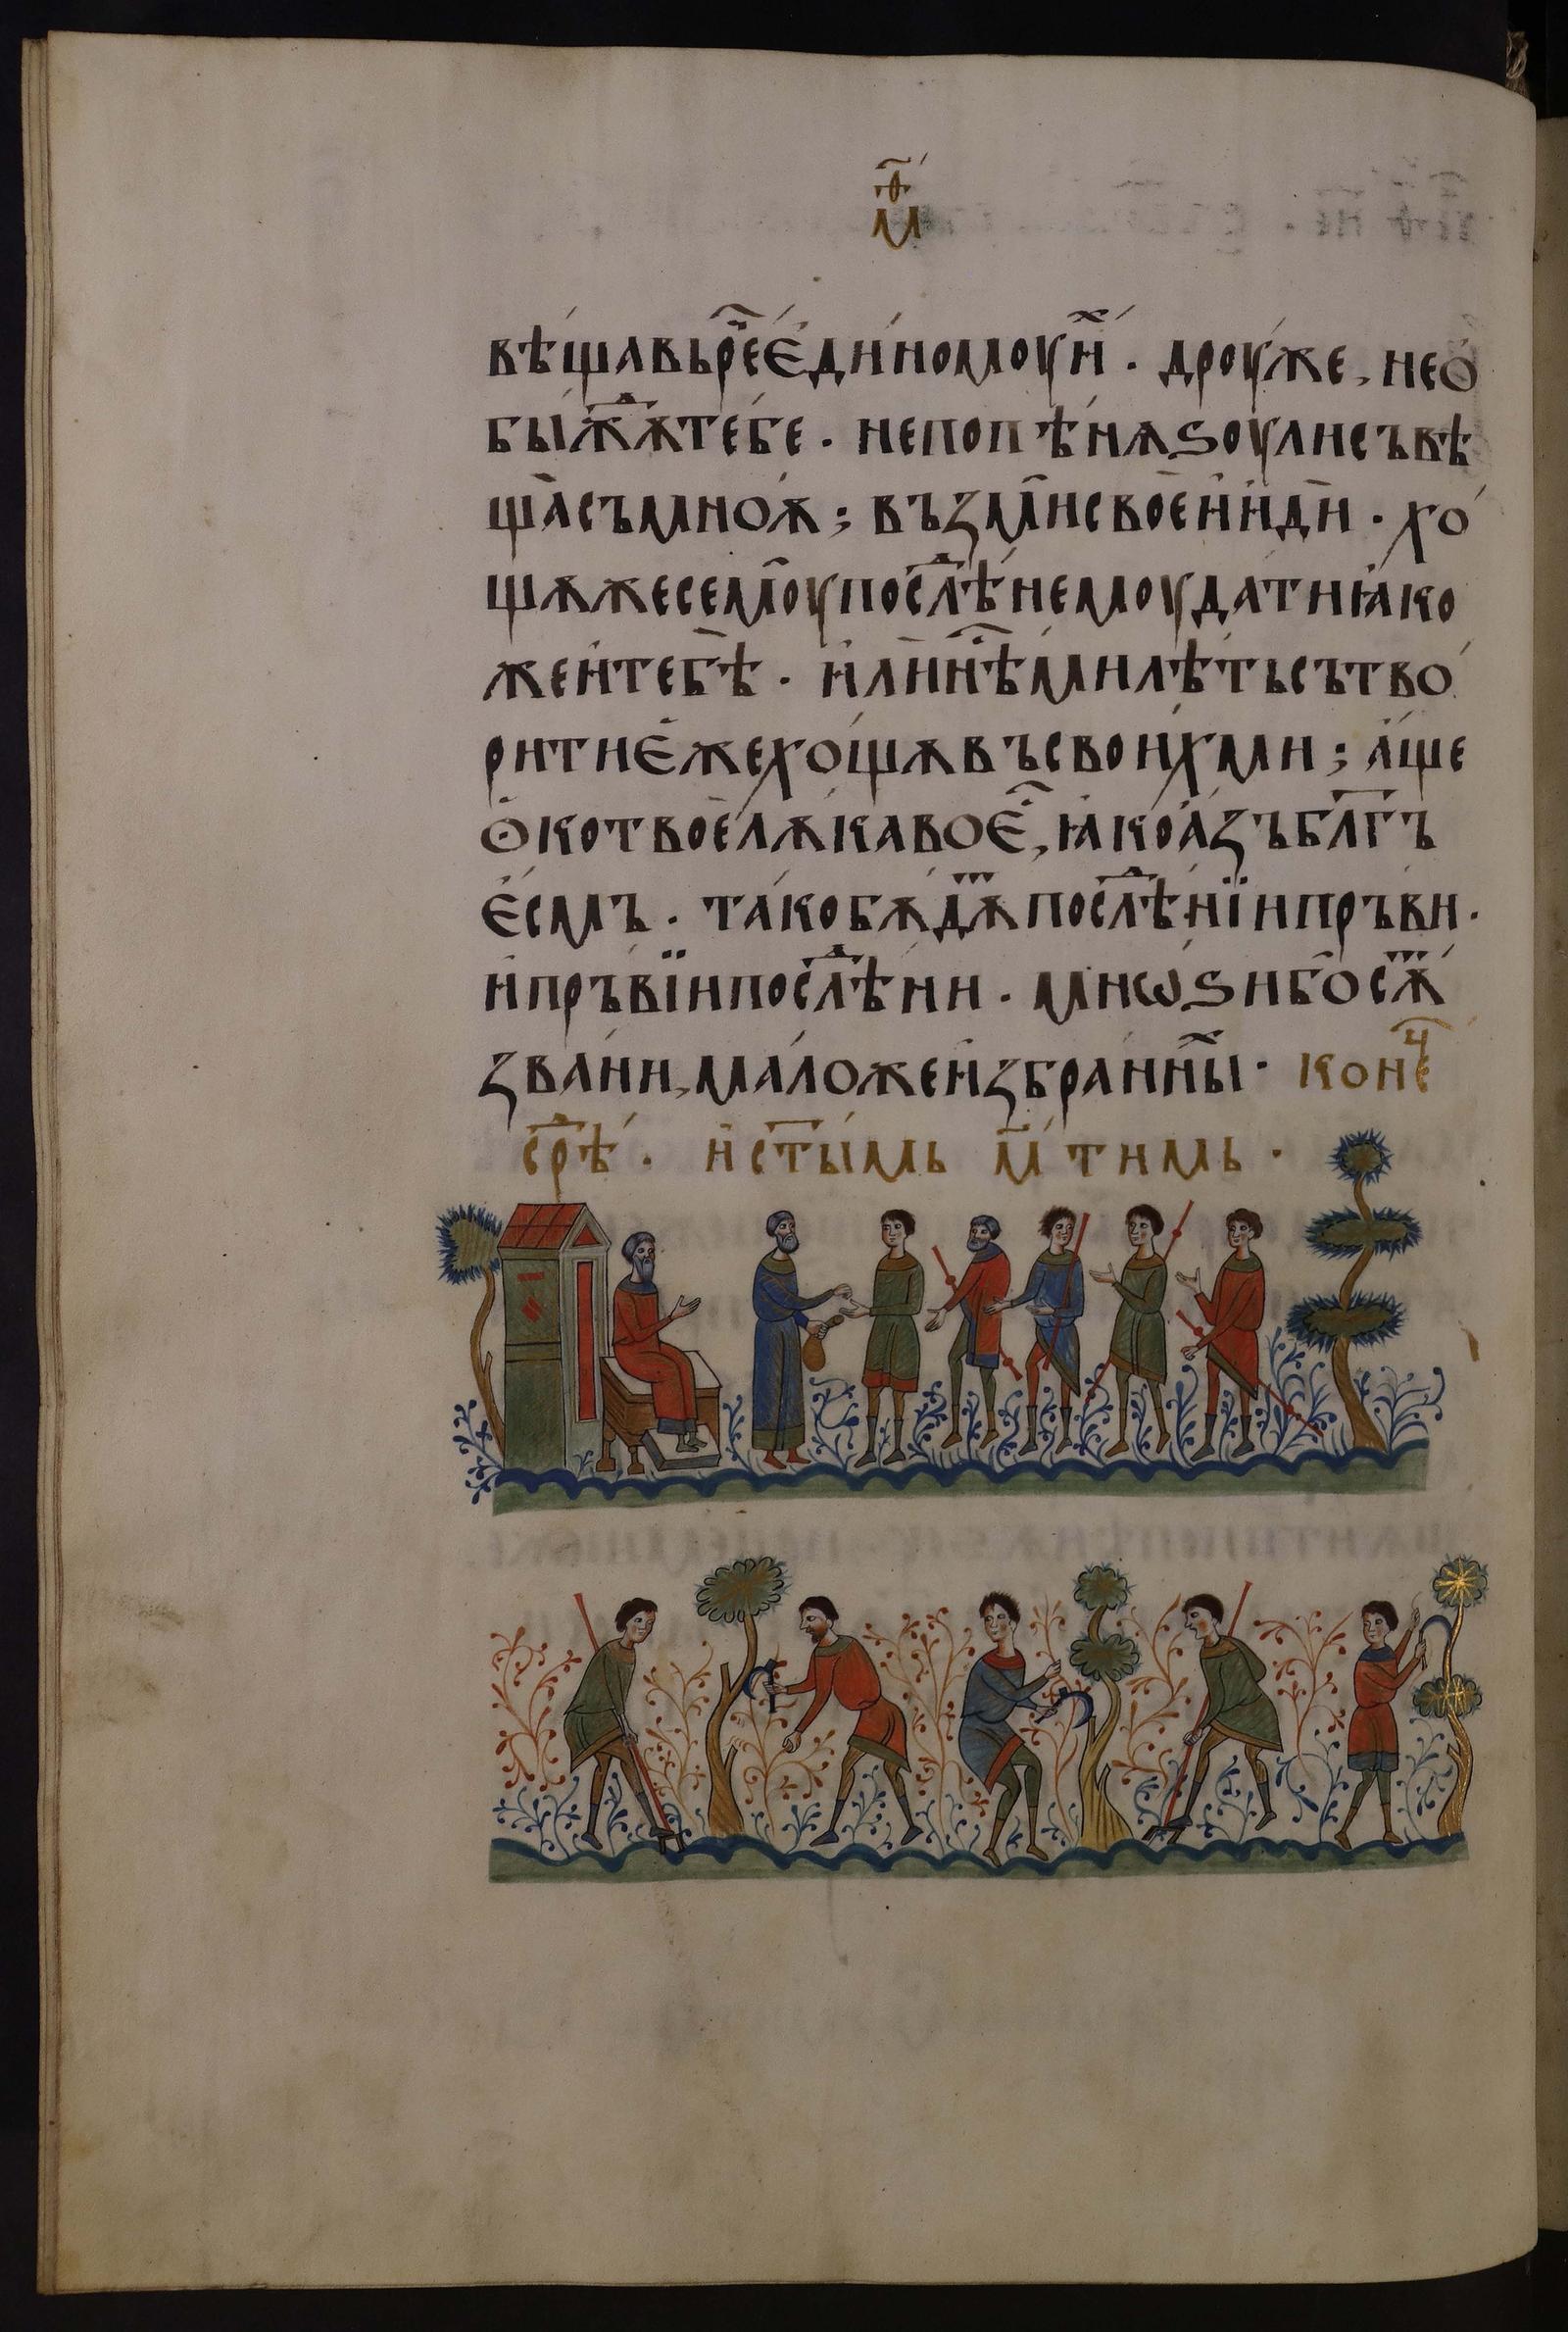 мⷴ҇
вѣщавьре҇є҆ди́номоуи҆̑ⷯ . дроу́же, нео҆
бы́жⷣѫтебе . непопѣ́нѧѕоулисъвѣ
ща̀съмноѫ҆; въꙁмѝсвоѐи҆и҆дѝ . хо́
щѫжесемоу̑послⷣѣ́немоуда́тиꙗ҆ко
жеи҆тебѣ̀ . и҆лѝнⷭ҇ѣ́милѣ́тьсътво́
ритиє҆жехо́щѫвъсвои́хми; а҆́ще
ѻ҆котвоѐлѫ́кавоє҆ⷭ҇, ꙗ҆коа҆́ꙁъбл҃гъ
є҆́смъ . та́кобѫ́дѫⷮпослⷣѣ́нїипръ́ви .
и҆пръ́вїипослⷣѣ́ни . мнѡѕибо̀сѫⷮ
ꙁва́ни, ма́ложеи҆ꙁбра́нныⷯ . конеⷱ҇
срⷣѣ . и҆ст҃ы́мь м҃тимь .